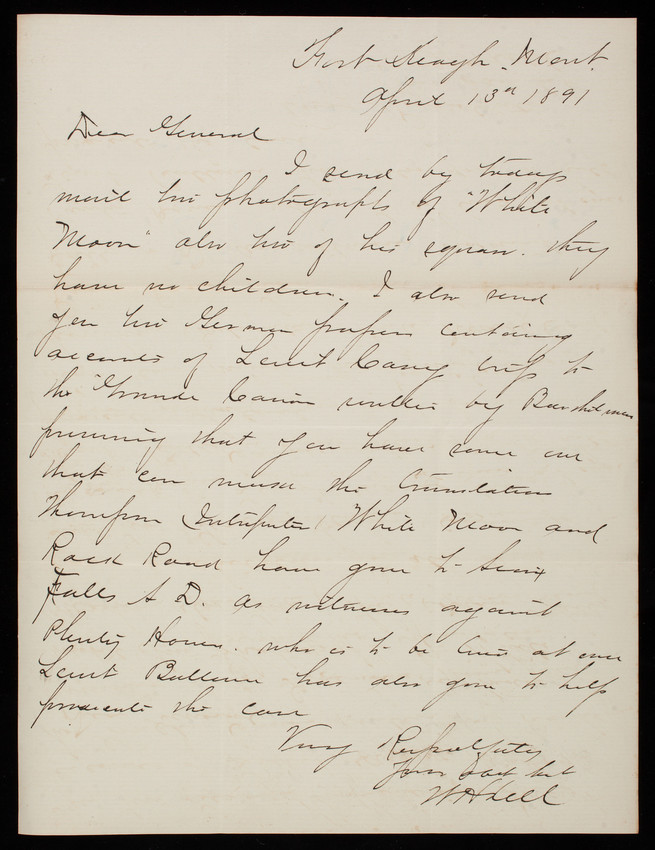 Fort Keogh, Mont.
April 13th 1891
Dear General
I send by todays
mail two photographs of "White
Moon" also two of his squaw. they
have no children. I also send
you two German papers containing
accounts of Lieut Casey trip to
the Grande Cañon written by
presuming that you have some one
that can make the translation
Thompson (Interpreter) White Moon and
Rock Road have gone to Sioux
Falls S D. as witnesses against
Plenty Horses. who is to be tried at once
Lieut has also gone to help
prosecute the case
Very Respectfully
Your obdt